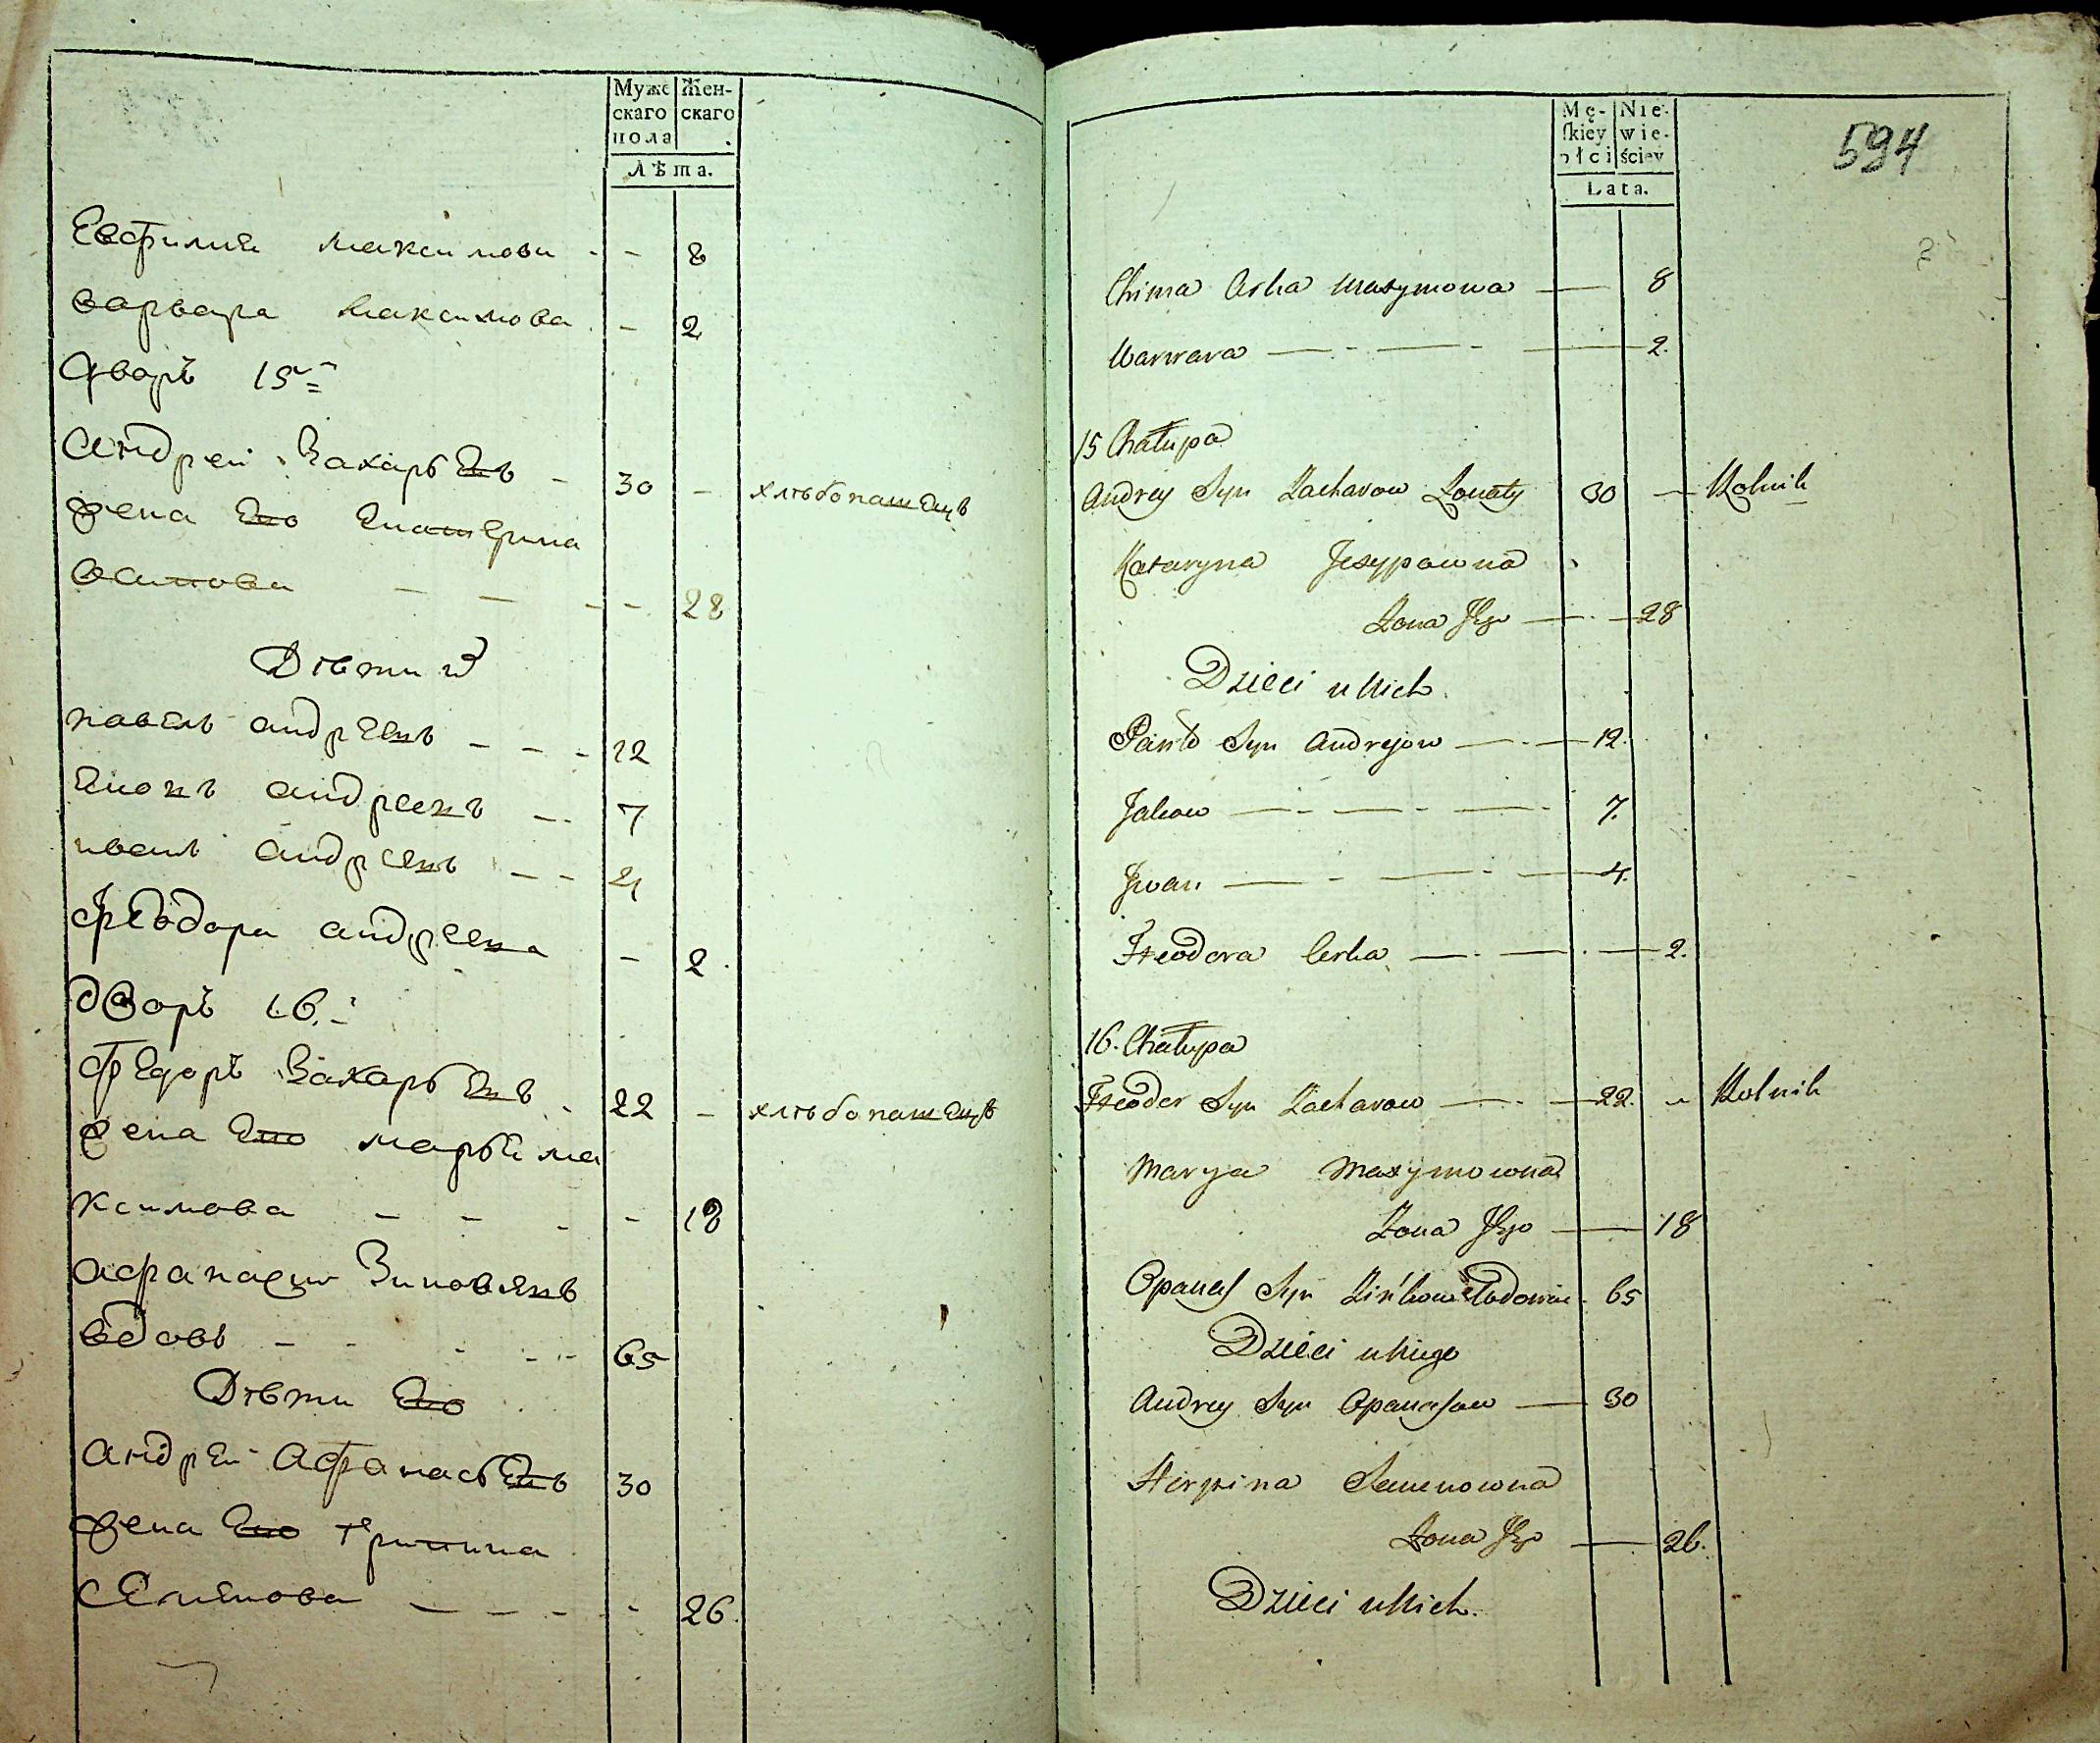 Муже Жен-
скаго скаго
пола
Лѣта.
Евфимия максимова - - 8
варвара максимова - 2
дворъ 15
андрей Захарьевъ - 30 - хлѣбопашецъ
жена его екатерина
осипова - - - - 28
Дѣти их
павелъ андреевъ - - - 12
андреевъ - - 7
иванъ андреевъ - - 4
феодора андреева - 2
дворъ 16
Федоръ Захарьевъ - 22 - хлѣбопашецъ
жена его марья ма
ксимова - - - - 18
афанасий Зиновьевъ
вдовъ - - - - 65
Дѣти его
андрей Афанасьевъ 30
жена его
семенова - - - - 26
Mę- Nie-
ſkiey wie-
płci ściey
Lata.
594
Chima Corka Maxymowa — 8
Warwara — - — - — 2.
15 Chałupa
Andrey Syn Zacharow Zonaty 30 — Rolnik
Kataryna Jesypowna
Zona Jego — - — 28
Dzieci u Nich.
Pawło Syn Andrejow — - — 12.
Jakow — - — - — - 7.
Iwan — - — - — 4.
Fteodora Corka — - — - — 2.
16. Chałupa
Fteodor Syn Zacharow — - — 22. - Rolnik
Marya Maxymowna
Zona Jego — 18
Opanas Syn Zińkow Wdowiec - 65
Dzieci u Niego
Andrey Syn Opanasow — 30
Horpina Semenowna
Zona Jego — 26.
Dzieci u Nich.